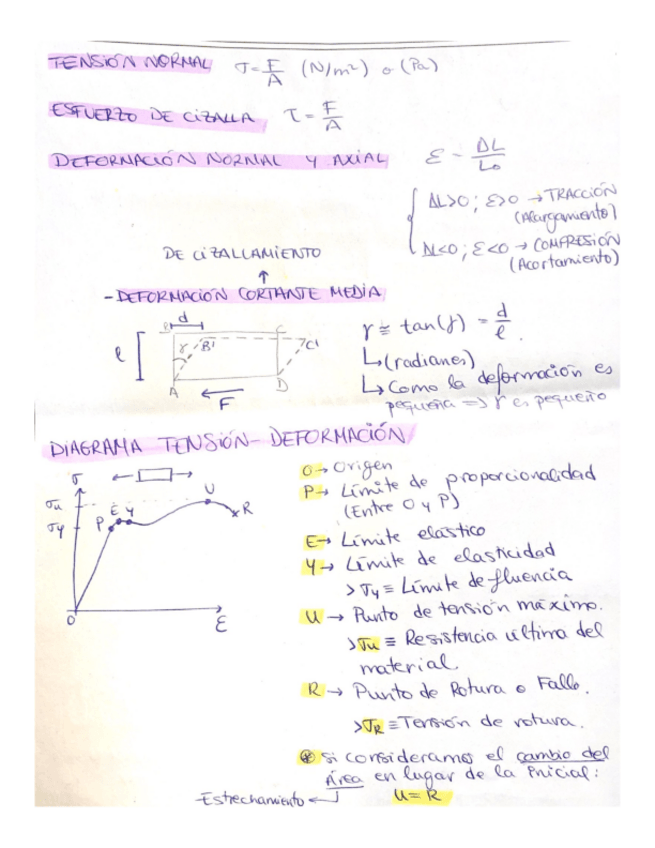 TENSIÓN NORMAL σ = F/A (N/m²) o (Pa)
ESFUERZO DE CIZALLA τ = F/A
DEFORMACIÓN NORMAL Y AXIAL ε = ΔL/L₀
ΔL>0; ε>0 → TRACCIÓN
(Alargamiento)
ΔL<0; ε<0 → COMPRESIÓN
(Acortamiento)
DE CIZALLAMIENTO
↑
- DEFORMACIÓN CORTANTE MEDIA
d
B C
l γ B' C'
A D
F
γ ≅ tan(γ) = d/l
↳ (radianes)
↳ Como la deformación es
pequeña ⇒ γ es pequeño
DIAGRAMA TENSIÓN-DEFORMACIÓN
σ
σu U
σy P E Y R
O ε
O → Origen
P → Límite de proporcionalidad
(Entre O y P)
E → Límite elástico
Y → Límite de elasticidad
> σy ≡ Límite de fluencia
U → Punto de tensión máximo.
> σu ≡ Resistencia última del
material.
R → Punto de Rotura o Fallo.
> σR ≡ Tensión de rotura.
⊛ Si consideramos el cambio del
Área en lugar de la inicial:
Estrechamiento ↵ U = R